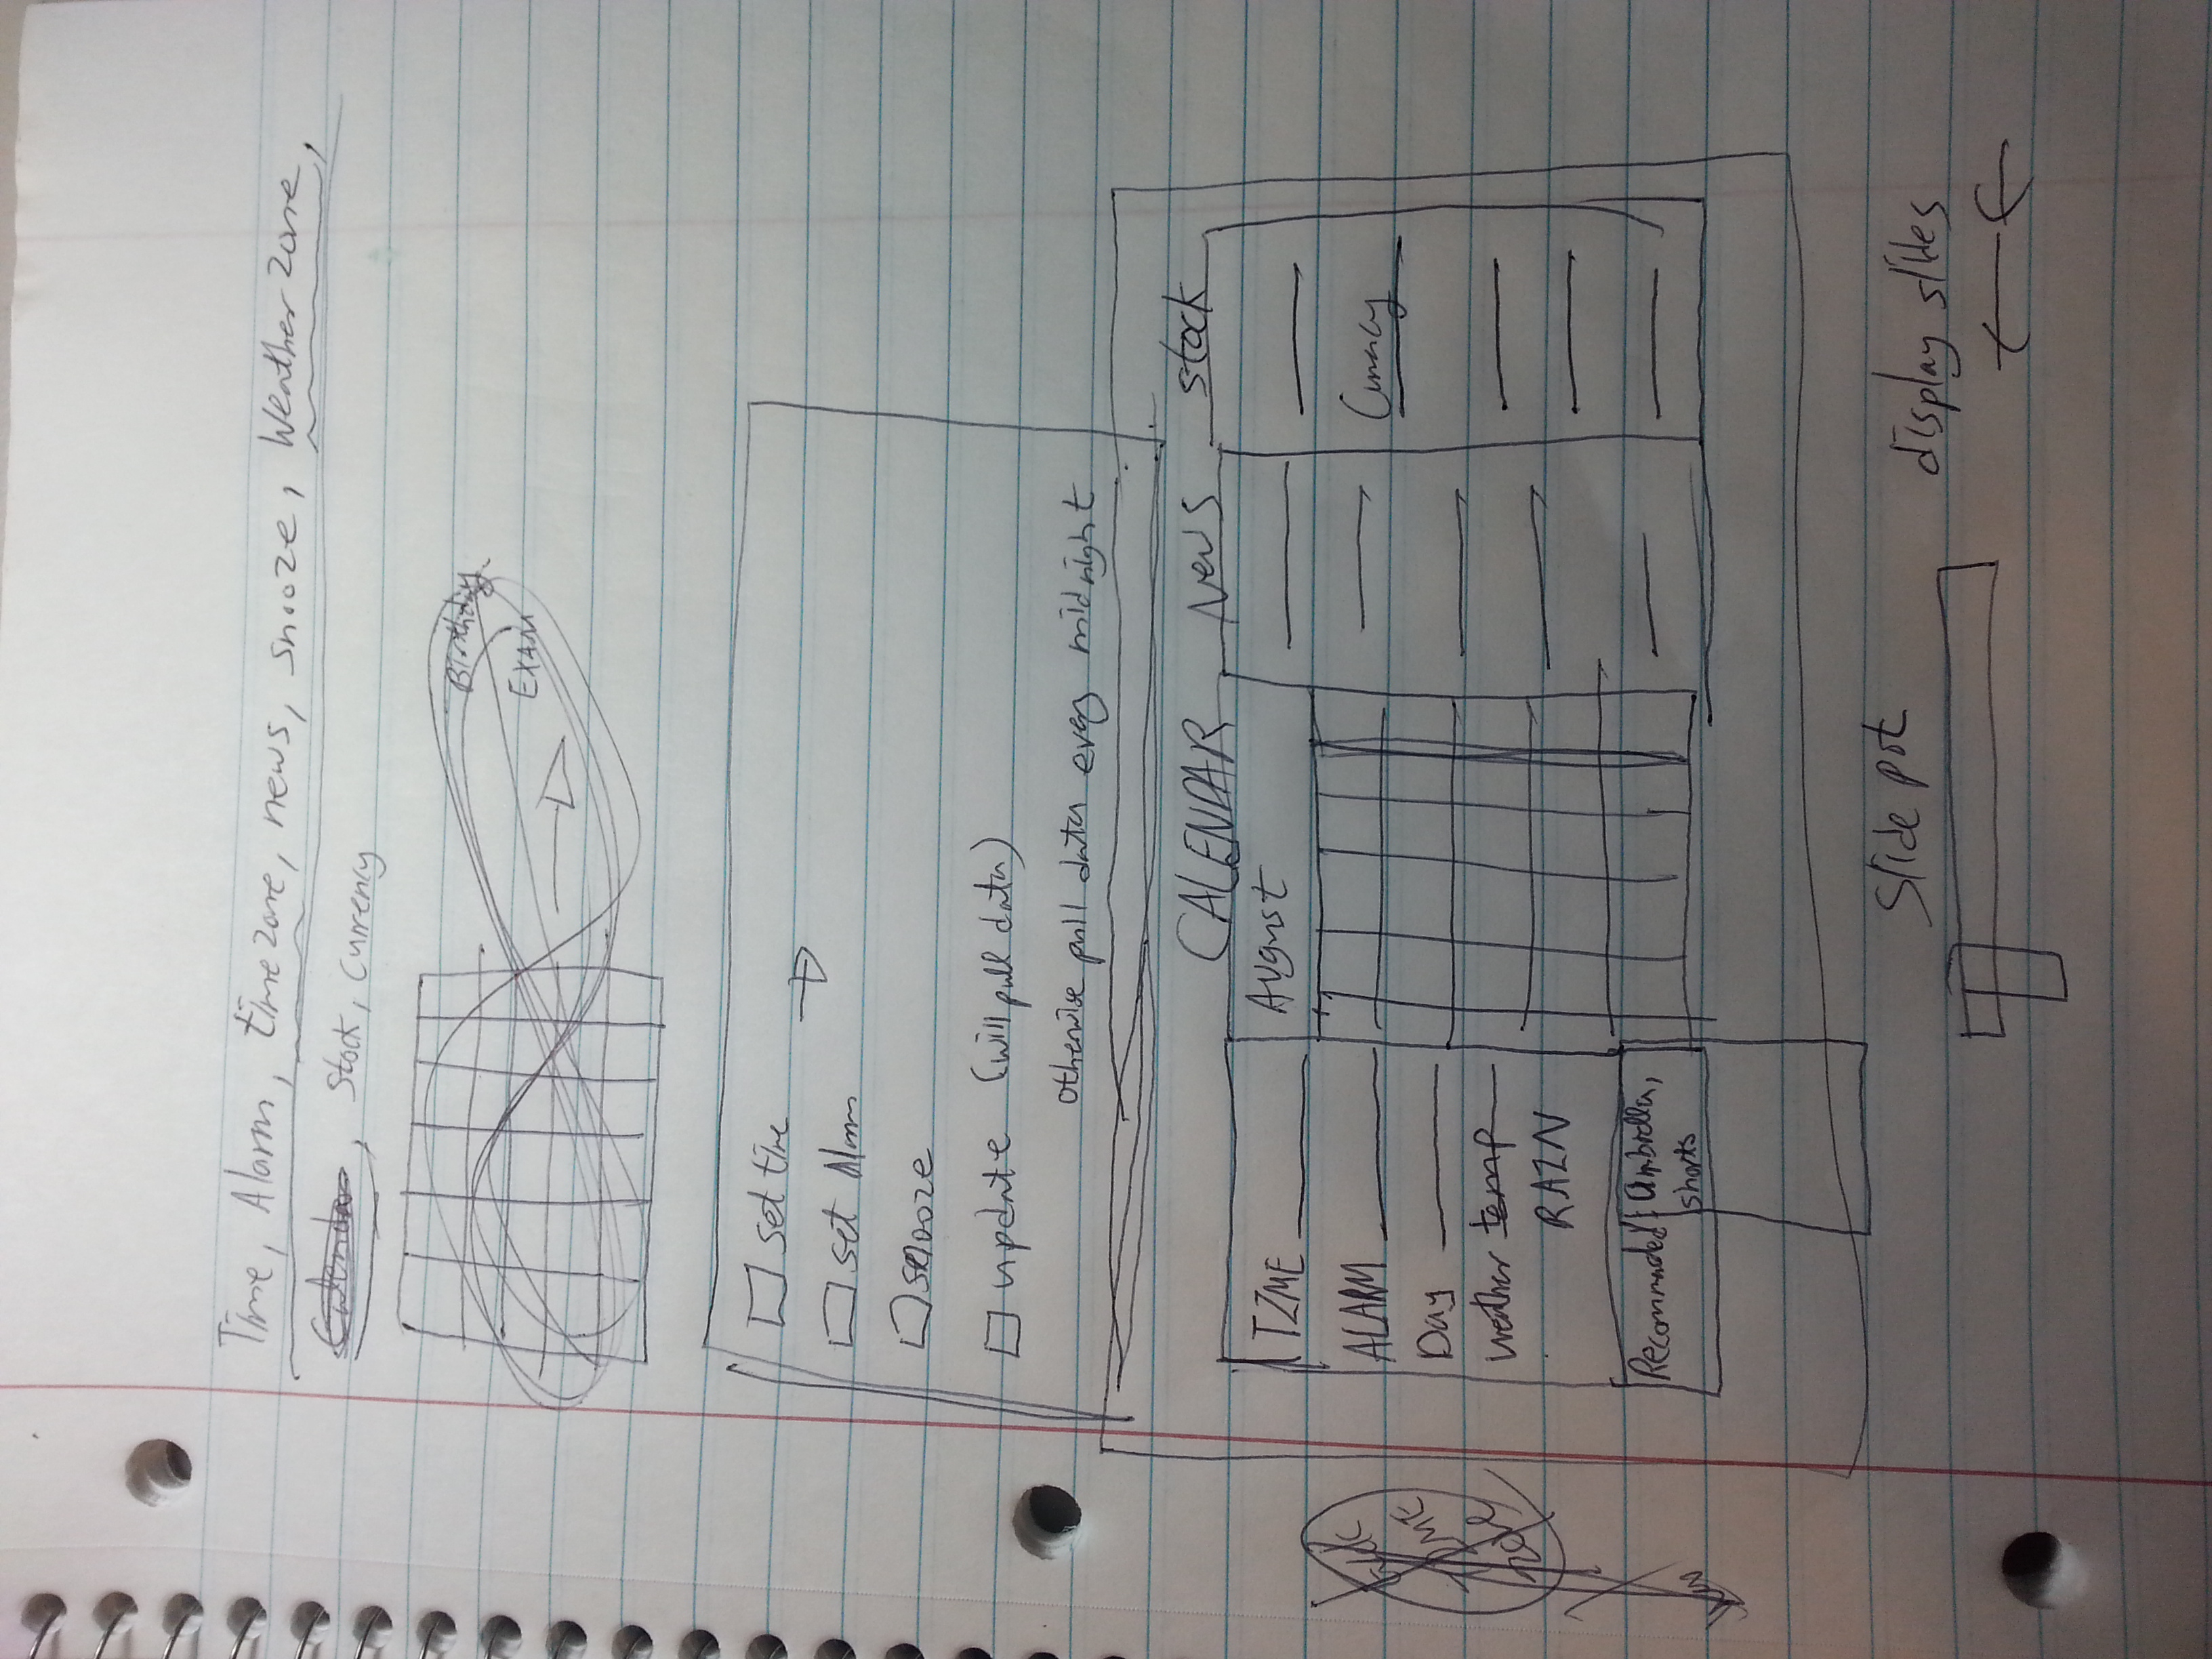 Time, Alarm, time zone, news, snooze, Weather zone,
Calendar, Stock, Currency
Birthday
EXAM
set time
set Alarm
snooze
update (will pull data)
otherwise pull data every midnight
CALENDAR News stock
TIME
ALARM
Day
weather temp
RAIN
Recommended
Umbrella,
shorts
August
Currency
Slide pot
display slides